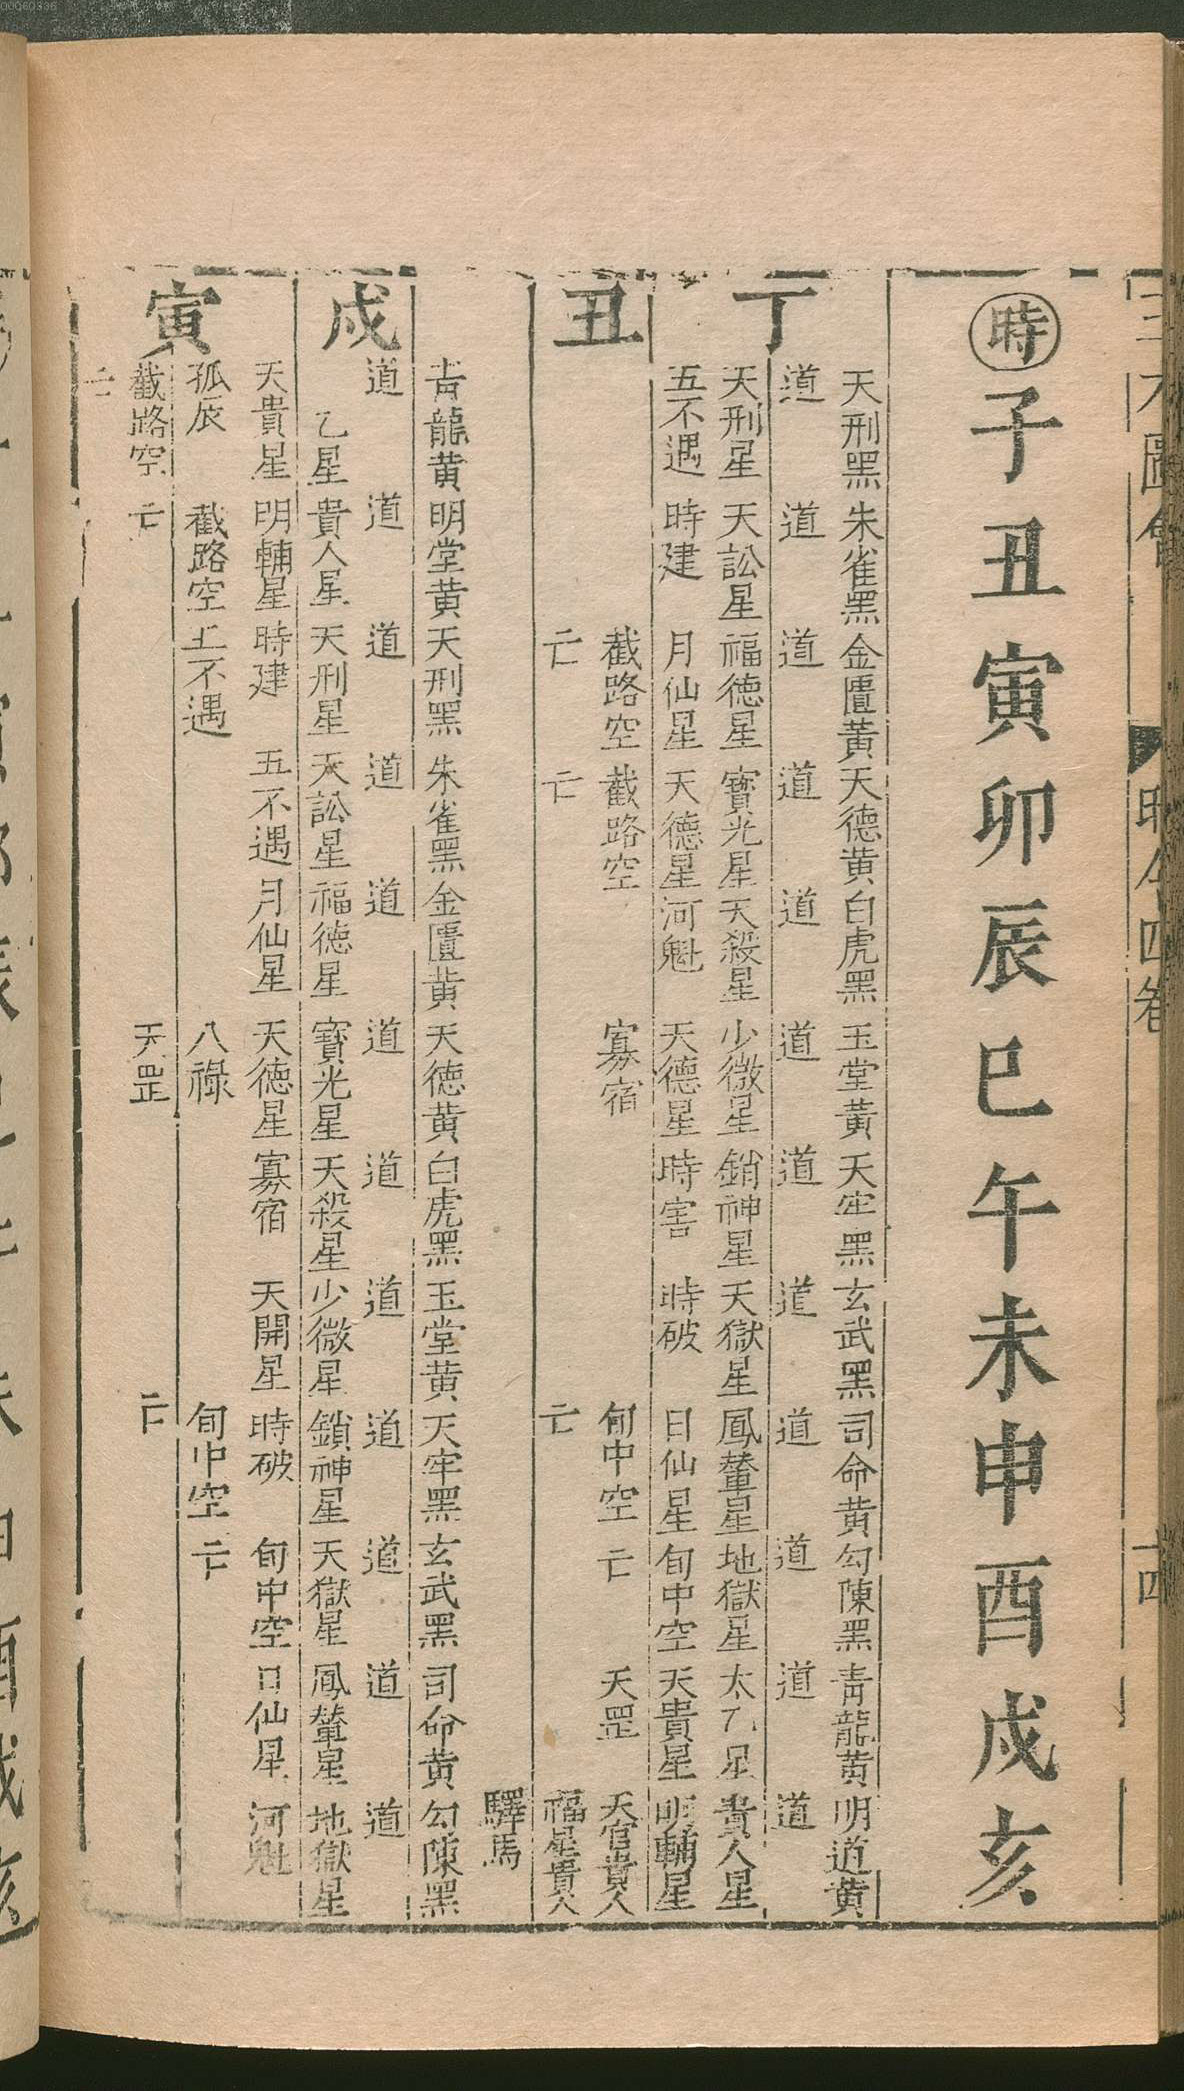 00060336
三才圖會 時令四卷 十四
時 子 丑 寅 卯 辰 巳 午 未 申 酉 戌 亥
丁丑
天刑黑 朱雀黑 金匱黃 天德黃 白虎黑 玉堂黃 天牢黑 玄武黑 司命黃 勾陳黑 青龍黃 明道黃
道 道 道 道 道 道 道 道 道 道 道 道
天刑星 天訟星 福德星 寶光星 天殺星 少微星 銷神星 天獄星 鳳輦星 地獄星 太乙星 貴人星
五不遇 時建 月仙星 天德星 河魁 天德星 時害 時破 日仙星 旬中空 天貴星 明輔星
截路空 截路空 寡宿 旬中空 亡 天罡 天官貴人
亡 亡 亡 福星貴人
驛馬
戊寅
青龍黃 明堂黃 天刑黑 朱雀黑 金匱黃 天德黃 白虎黑 玉堂黃 天牢黑 玄武黑 司命黃 勾陳黑
道 道 道 道 道 道 道 道 道 道 道 道
乙星 貴人星 天刑星 天訟星 福德星 寶光星 天殺星 少微星 鎖神星 天獄星 鳳輦星 地獄星
天貴星 明輔星 時建 五不遇 月仙星 天德星 寡宿 天開星 時破 旬中空 日仙星 河魁
孤辰 截路空 五不遇 八祿 旬中空 亡
截路空 亡 天罡 亡
亡